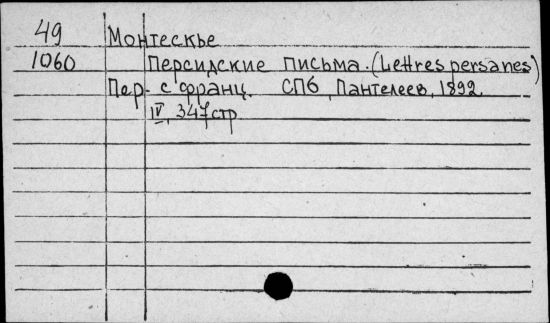 49 Монтескье
1060 Персидские письма. (Lettres persanes)
Пер. с франц. СПб, Пантелеев, 1892.
IV, 347 стр